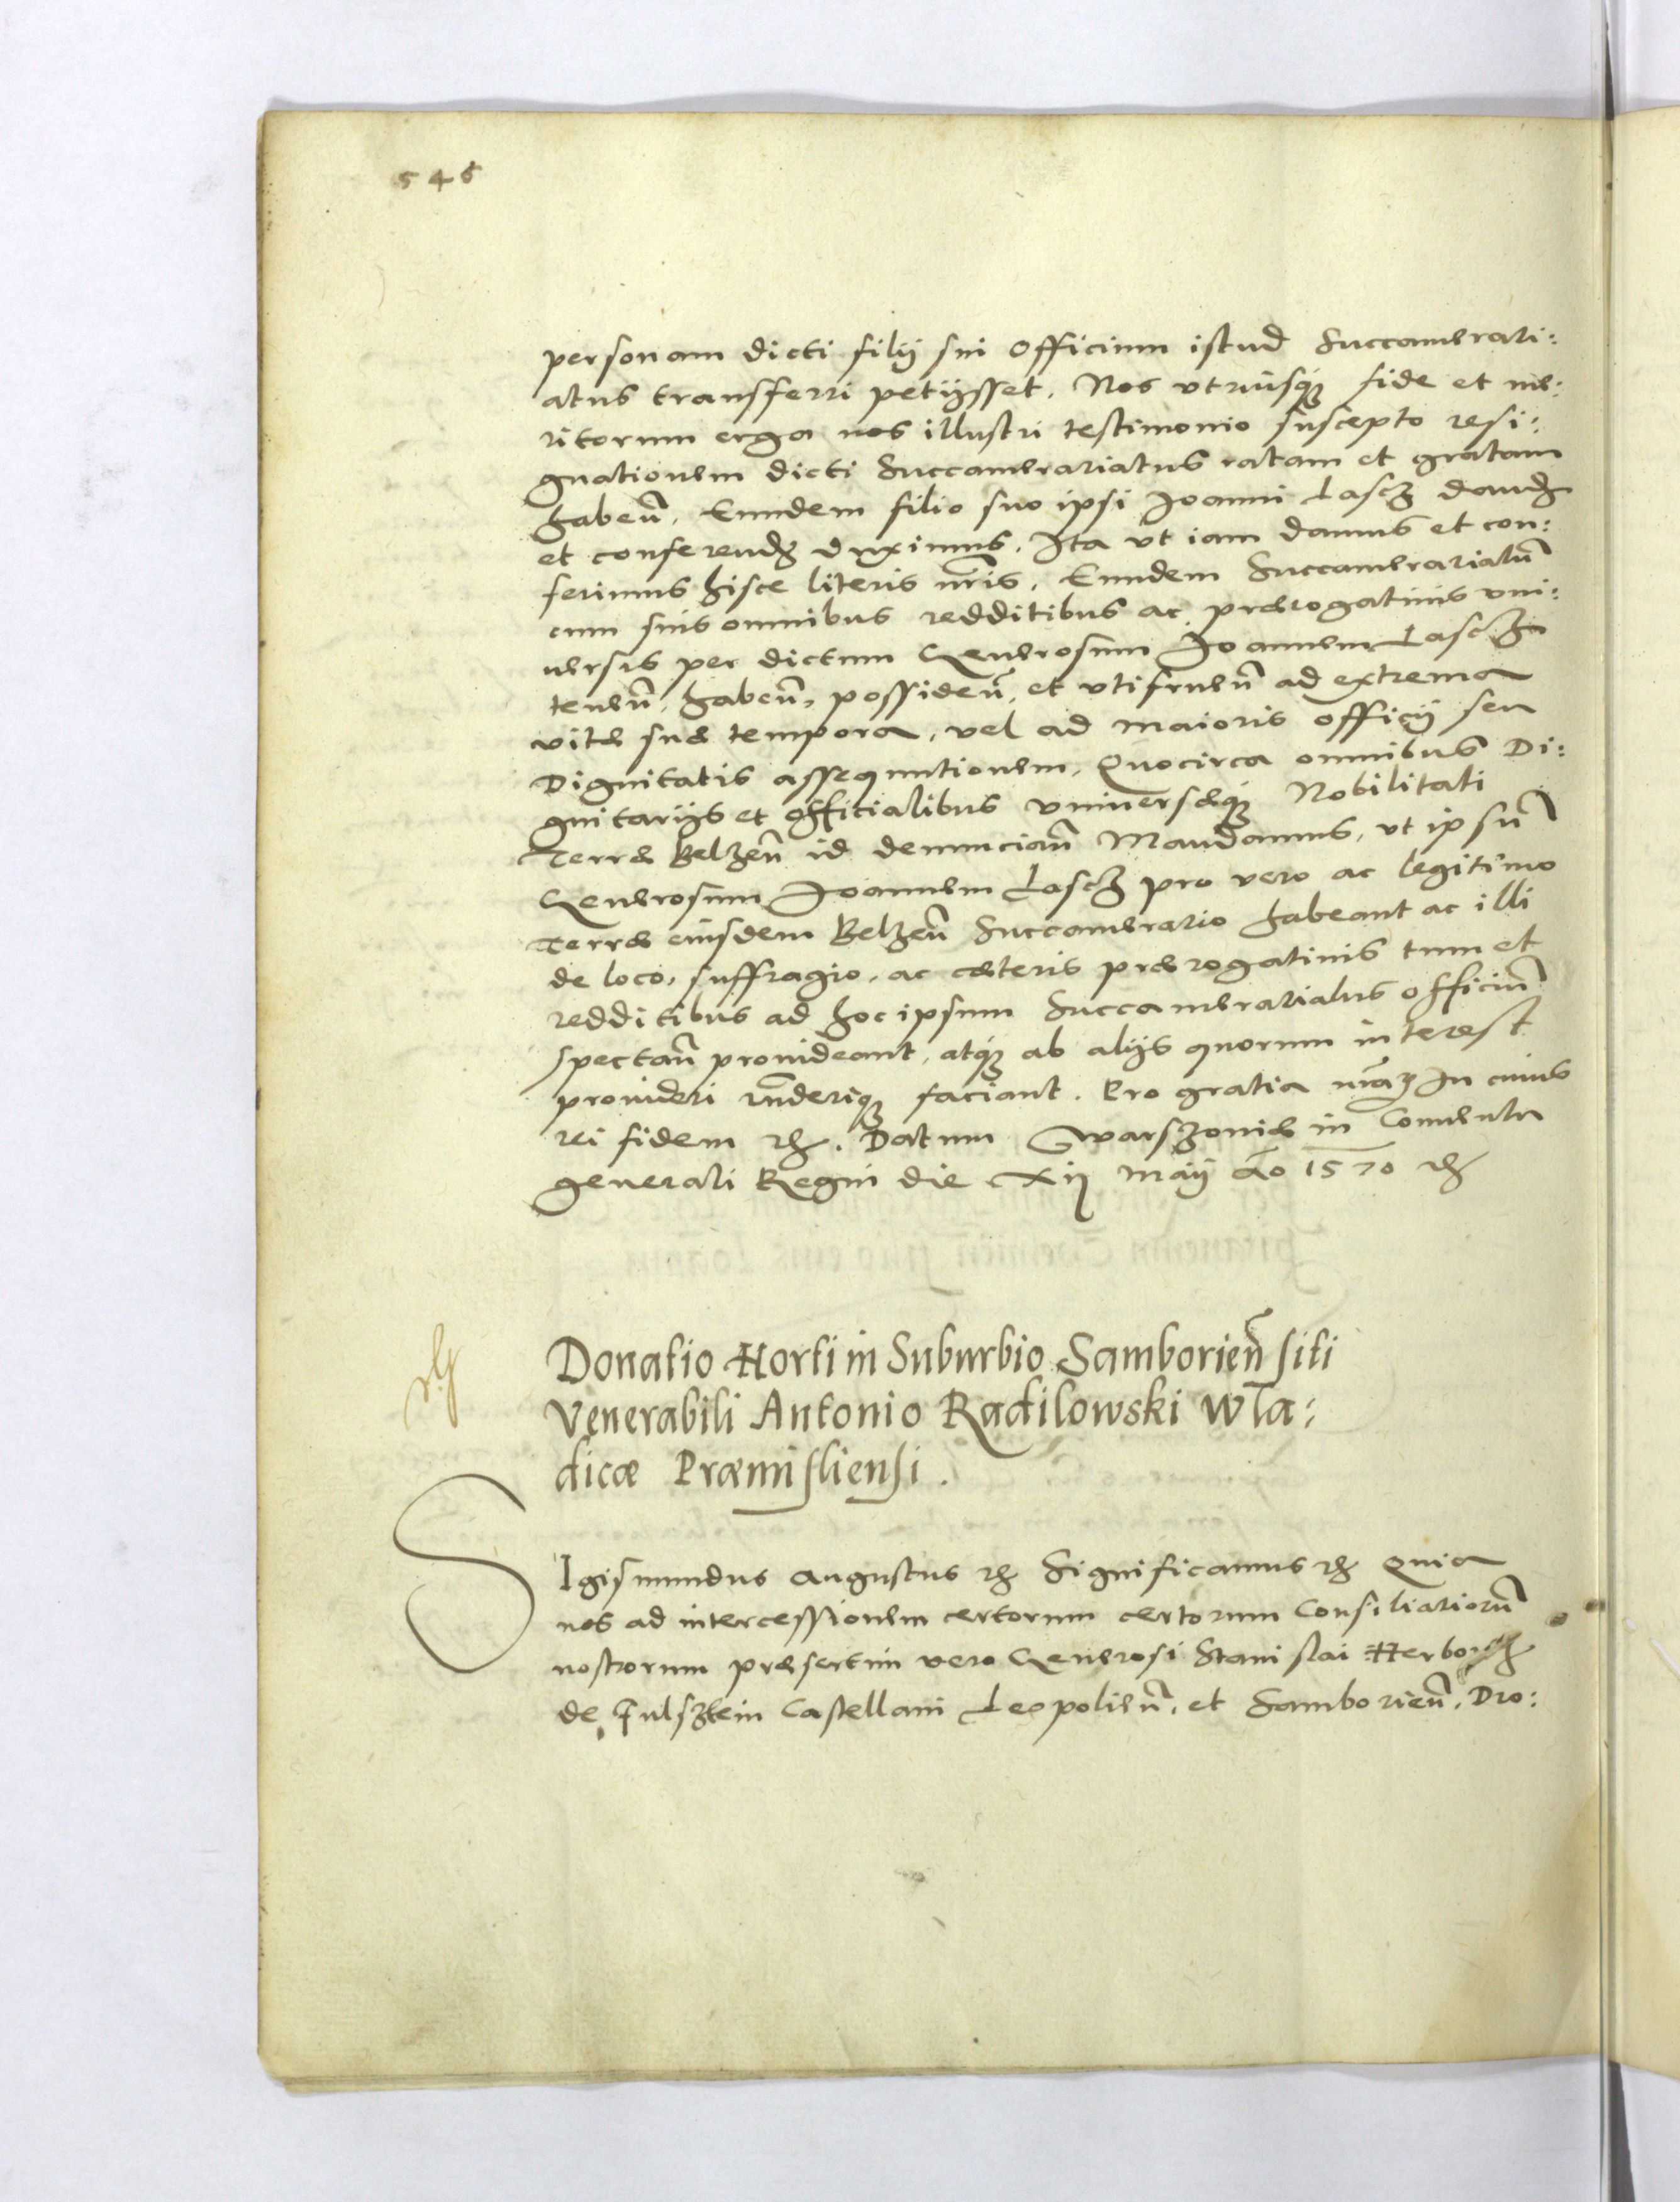 546
personam dicti filij sui Officium istud Succamerari:
atus transferri petijsset. Nos vtriusq; fide et me:
ritorum erga nos illustri testimonio suscepto resi:
gnationem dicti Succamerariatus ratam et gratam
habeñ. Eundem filio suo ipsi Joanni Lascz dandū
et conferendū duximus. Ita vt iam damus et con:
ferimus hisce literis nr̃is. Eundem Succamerariatū
cum suis omnibus redditibus ac prærogatiuis vni:
uersis per dictum Generosum Joannem Lascz
teneñ, habeñ, possideñ, et vtifrueñ ad extrema
vitæ suæ tempora, vel ad maioris officij seu
Dignitatis assequutionem. Quocirca omnibus Di:
gnitarijs et officialibus vniuersæq; Nobilitati
Terræ Belzeñ id denunciañ Mandamus, vt ipsū
Generosum Joannem Lascz pro vero ac legitimo
Terræ eiusdem Belzeñ Succamerario habeant ac illi
de loco, suffragio, ac cæteris prærogatiuis tum et
redditibus ad hoc ipsum Succamerariatus officiū
spectañ prouideant, atq; ab alijs quorum interest
prouideri rñderiq; faciant. Pro gratia nr̃a. In cuius
rei fidem etc. Datum Warszouiæ in Conuentu
generali Regni die Xij maij Ao 1570 etc
Donatio Horti in Suburbio Samborieñ siti
Venerabili Antonio Radilowski Wla:
dicæ Præmisliensi.
SIgismundus Augustus etc Significamus etc Quia
nos ad intercessionem certorum certorum Consiliariorū
nostrorum præsertim vero Generosi Stanislai Herborth
de Fulsztein Castellani Leopolieñ, et Samborieñ, Dro: